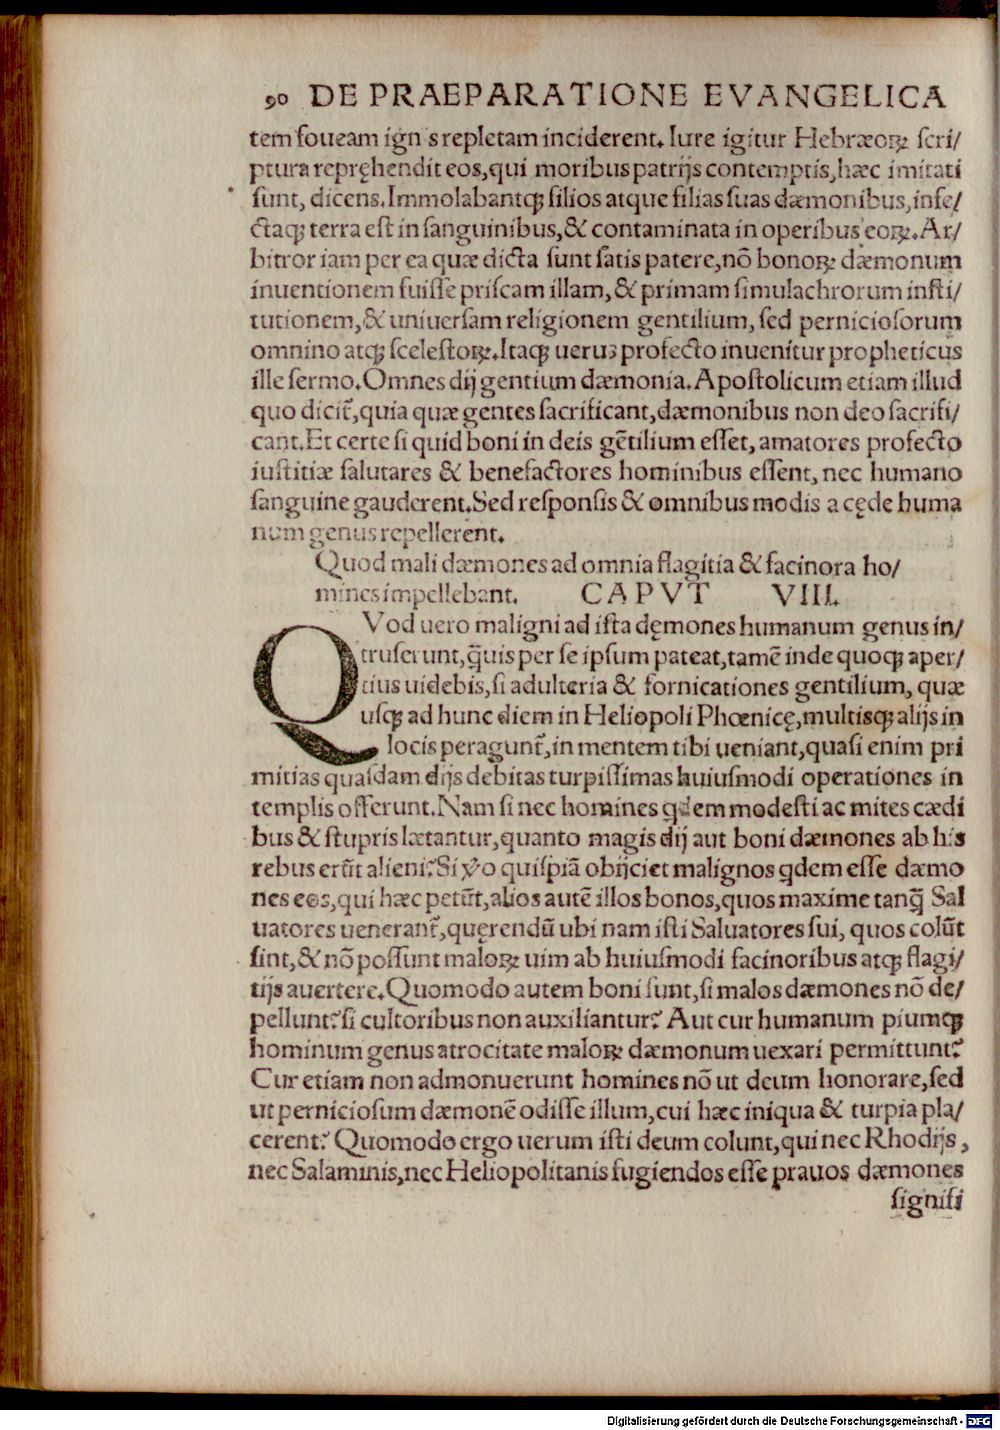 90 DE PRAEPARATIONE EVANGELICA
tem foueam ign s repletam inciderent. Iure igitur Hebræoꝝ scri/
ptura repręhendit eos, qui moribus patrijs contemptis, hæc imitati
sunt, dicens. Immolabantqꝫ filios atque filias suas dæmonibus, infe/
ctaqꝫ terra est in sanguinibus, & contaminata in operibus eoꝝ. Ar/
bitror iam per ea quæ dicta sunt satis patere, nõ bonoꝝ dæmonum
inuentionem fuisse priscam illam, & primam simulachrorum insti/
tutionem, & uniuersam religionem gentilium, sed perniciosorum
omnino atqꝫ scelestoꝝ. Itaqꝫ uerus profecto inuenitur propheticus
ille sermo. Omnes dij gentium dæmonia. Apostolicum etiam illud
quo dicit̃, quia quæ gentes sacrificant, dæmonibus non deo sacrifi/
cant. Et certe si quid boni in deis gẽtilium esset, amatores profecto
iustitiæ salutares & benefactores hominibus essent, nec humano
sanguine gauderent. Sed responsis & omnibus modis a cęde huma
num genus repellerent.
Quod mali dæmones ad omnia flagitia & facinora ho/
mines impellebant. CAPVT VIII.
QVod uero maligni ad ista dęmones humanum genus in/
truserunt, q̃uis per se ipsum pateat, tamẽ inde quoqꝫ aper/
tius uidebis, si adulteria & fornicationes gentilium, quæ
usqꝫ ad hunc diem in Heliopoli Phœnicę, multisqꝫ alijs in
locis peragunt̃, in mentem tibi ueniant, quasi enim pri
mitias quasdam dijs debitas turpissimas huiusmodi operationes in
templis offerunt. Nam si nec homines qdem modesti ac mites cædi
bus & stupris lætantur, quanto magis dij aut boni dæmones ab his
rebus erũt alieni? Si ṽo quispiã obijciet malignos qdem esse dæmo
nes eos, qui hæc petũt, alios autẽ illos bonos, quos maxime tanq̃ Sal
uatores uenerant̃, quęrendũ ubi nam isti Saluatores sui, quos colũt
sint, & nõ possunt maloꝝ uim ab huiusmodi facinoribus atqꝫ flagi/
tijs auertere. Quomodo autem boni sunt, si malos dæmones nõ de/
pellunt? si cultoribus non auxiliantur? Aut cur humanum piumqꝫ
hominum genus atrocitate maloꝝ dæmonum uexari permittunt?
Cur etiam non admonuerunt homines nõ ut deum honorare, sed
ut perniciosum dæmonẽ odisse illum, cui hæc iniqua & turpia pla/
cerent? Quomodo ergo uerum isti deum colunt, qui nec Rhodijs,
nec Salaminis, nec Heliopolitanis fugiendos esse prauos dæmones
signifi
Digitalisierung gefördert durch die Deutsche Forschungsgemeinschaft - DFG